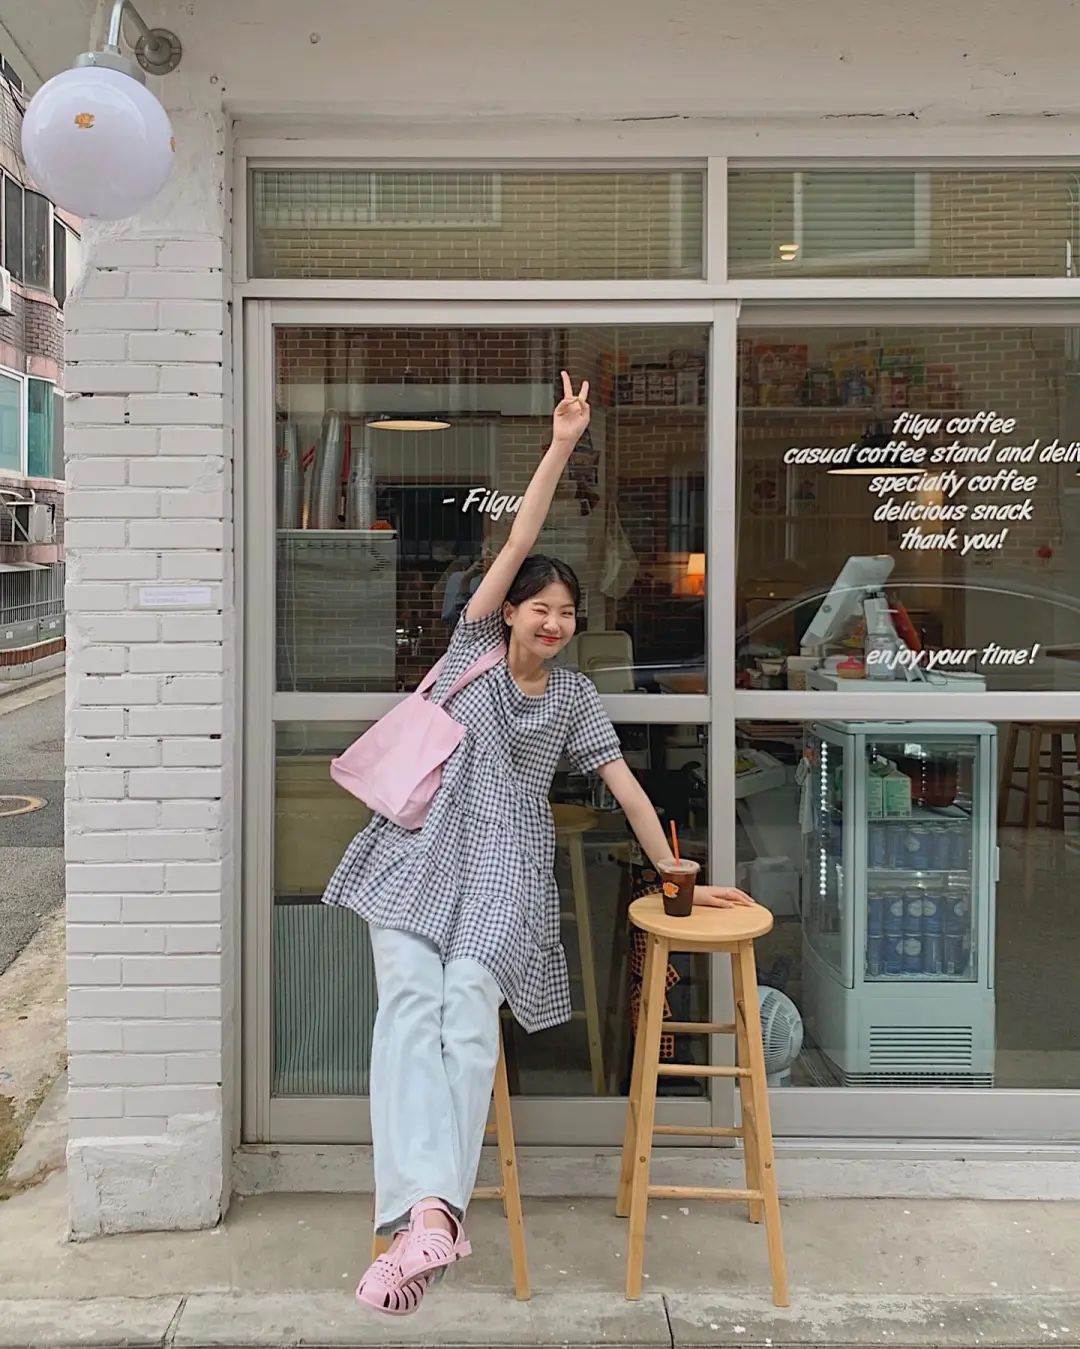 - Filgu
filgu coffee
casual coffee stand and deli
specialty coffee
delicious snack
thank you!
enjoy your time!